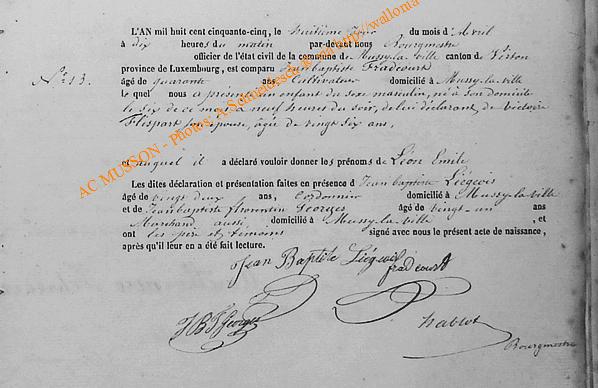 L'AN mil huit cent cinquante-cinq, le huitième jour du mois d'Avril
à dix heures du matin par-devant nous Bourgmestre
officier de l'état civil de la commune de Mussy-la-ville canton de Virton
N.º 13. province de Luxembourg, est comparu Jean baptiste Fradcourt
âgé de quarante ans, Cultivateur domicilié à Mussy-la-ville
le quel nous a présenté un enfant du sexe masculin, né à son domicile
le Six de ce mois à neuf heures du soir, de lui déclarant, de Victoire
Flispart son épouse, âgée de vingt six ans,
et auquel il a déclaré vouloir donner les prénoms de Léon Emile
Les dites déclaration et présentation faites en présence d Jean baptiste Liégeois
âgé de vingt deux ans, Cordonnier domicilié à Mussy-la-ville
et de Jean baptiste florentin Georges âgé de vingt-un ans
Marchand aussi domicilié à Mussy-la-ville, et
ont les père et témoins signé avec nous le présent acte de naissance,
après qu'il leur en a été fait lecture.
Jean Baptiste Liégeois
fradcourt
JBF Georges
hablot
Bourgmestre
AC MUSSON - Photos: A.Schmedesck @ http://wallonia